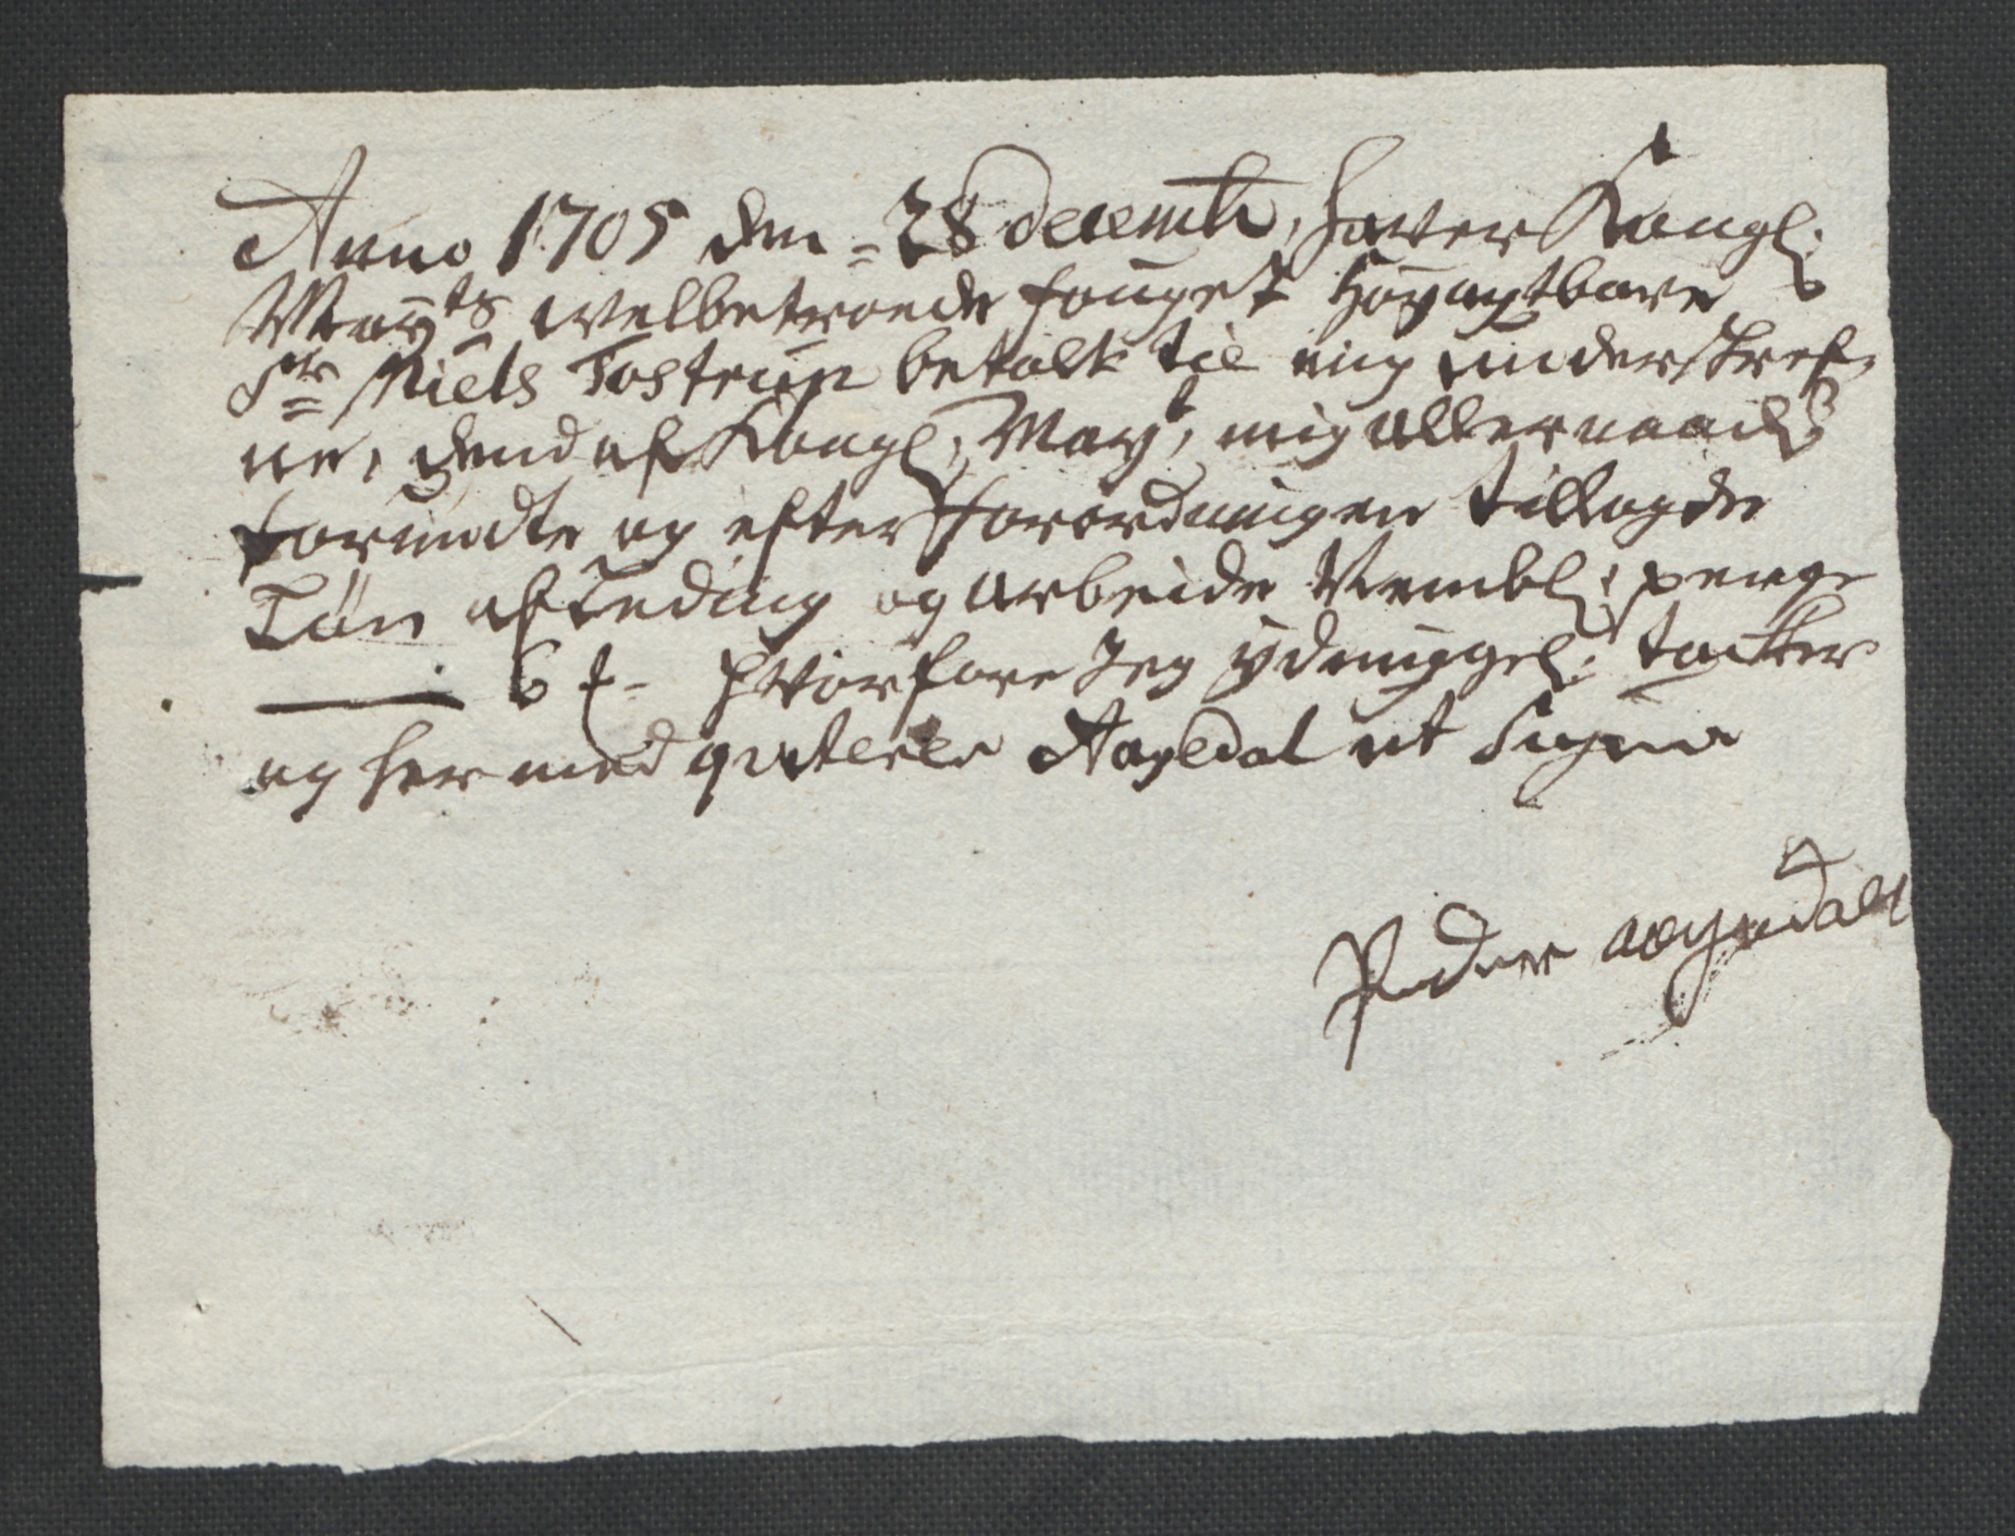 Anno 1705 den = 28 decembr, haver Kongl:
May:ts welbetroede fouget Høyagtbare
Sr Niels Tostrup betalt til mig understref-
ne, dend af Kongl: Mayt, mig allernaadigst
forundte og efter forordningen tillagde
Løn af Leding og arbeids penge
6 hvorfore Jeg ydmygel: tacker
og hermed qviterer Aagedal ut Supra
Peder Aagedahl